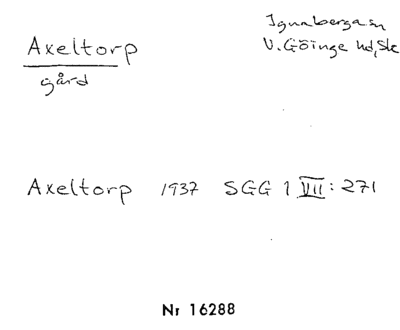 Axeltorp
gård
Ignaberga sn
V. Göinge hd, Sk
Axeltorp 1937 SGG 1 VII: 271
Nr 16288